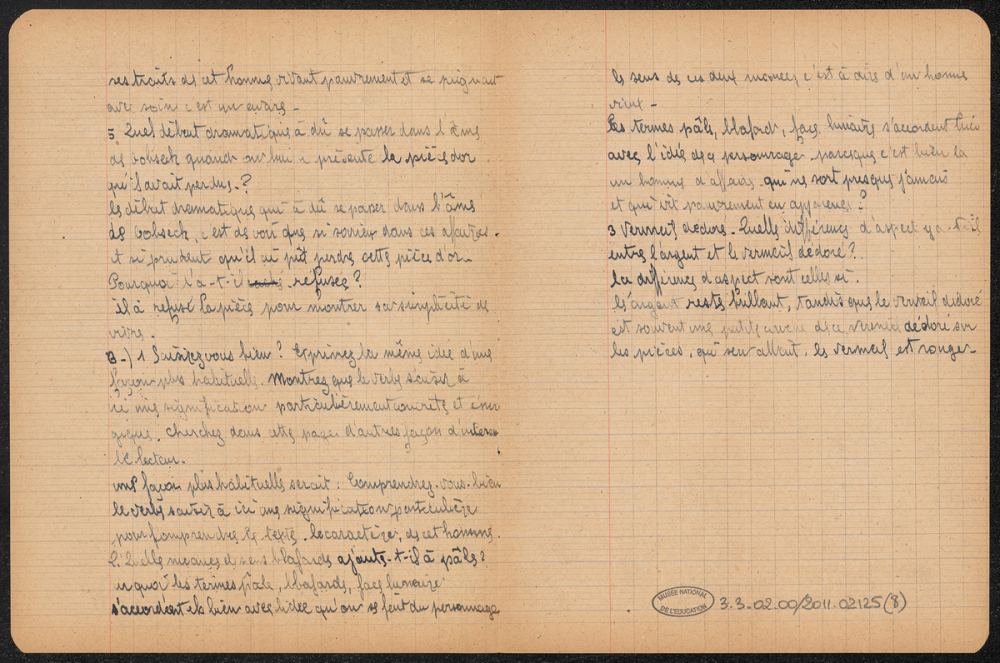 ses traits de cet homme vivant pauvrement et se peignant
avec soin c'est un avare -
5. Quel début dramatique à dû se passer dans l'âme
de Gobseck quand on lui a présenté la pièce d'or
qu'il avait perdue. ?
les début dramatique qui à dû se passer dans l'âme
de Gobseck, c'est de voir que si soucieux dans ces affaires.
et si prudent qu'il ai pût perdre cette pièce d'or.
Pourquoi l'a-t-il refusée ?
il à refusé la pièce pour montrer sa simplicité de
vivre.
B-) 1 Saisissez vous bien ? Exprimez la même idée d'une
façon plus habituelle. Montrez que le verbe saisir à
ici une signification particulièrement concrète et éner
gique. Cherchez dans cette page d'autres façon d'intéres
le lecteur.
une façon plus habituelle serait : Comprenez-vous bien
le verbe saisir à ici une signification particulière
pour comprendre le texte. le caractère, de cet homme.
2. Quelle nuance de sens blafarde ajoute-t-il à pâle ?
en quoi les termes pâle, blafarde, face lunaire
s'accordent ils bien avec l'idée qu'on se fait du personnage
le sens de ces deux nuances c'est à dire d'un homme
vieux -
Les termes pâle, blafard, face lunaire s'accordent
avec l'idée de ce personnage parceque c'est bien là
un homme d'affaire qui ne sort presque jamais
et qui vit pauvrement en apparence ?
3 vermeil dédoré. Quelle différence d'aspect y a-t-il
entre l'argent et le vermeil dédoré ?
la différence d'aspect sont celles ci.
l'argent reste brillant, tandis que le vermeil dédoré
est souvent une petite couche de ce vermeil dédoré sur
les pièces, qui s'en allait. le vermeil est rouge.
MUSÉE NATIONAL DE L'EDUCATION
3.3.02.00/2011.02125(8)